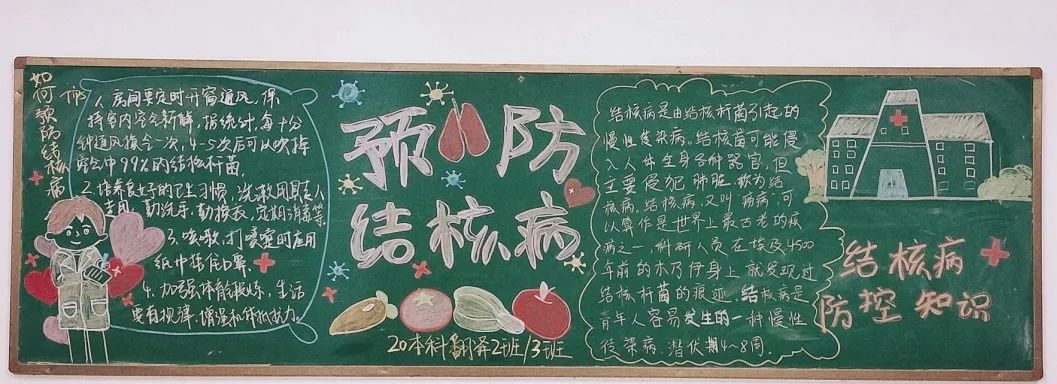 如何预防结核病
Tips
1、房间要定时开窗通风,保
持室内空气新鲜,据统计,每十分
钟通风换气一次,4-5次后可以吹掉
空气中99%的结核杆菌。
2.培养良好的卫生习惯,洗漱用具专人
专用,勤洗手,勤换衣,定期消毒等。
3、咳嗽,打喷嚏时应用
纸巾捂住口鼻。
4、加强体育锻炼,生活
要有规律,增强机体抵抗力。
预防
结核病
20本科翻译2班/3班
结核病是由结核杆菌引起的
慢性传染病。结核菌可能侵
入人体全身各种器官,但
主要侵犯肺脏,称为结
核病。结核病,又叫"痨病",可
以算作是世界上最古老的疾
病之一,科研人员在埃及4500
年前的木乃伊身上就发现过
结核杆菌的痕迹。结核病是
青年人容易发生的一种慢性
传染病,潜伏期4~8周。
结核病
防控知识